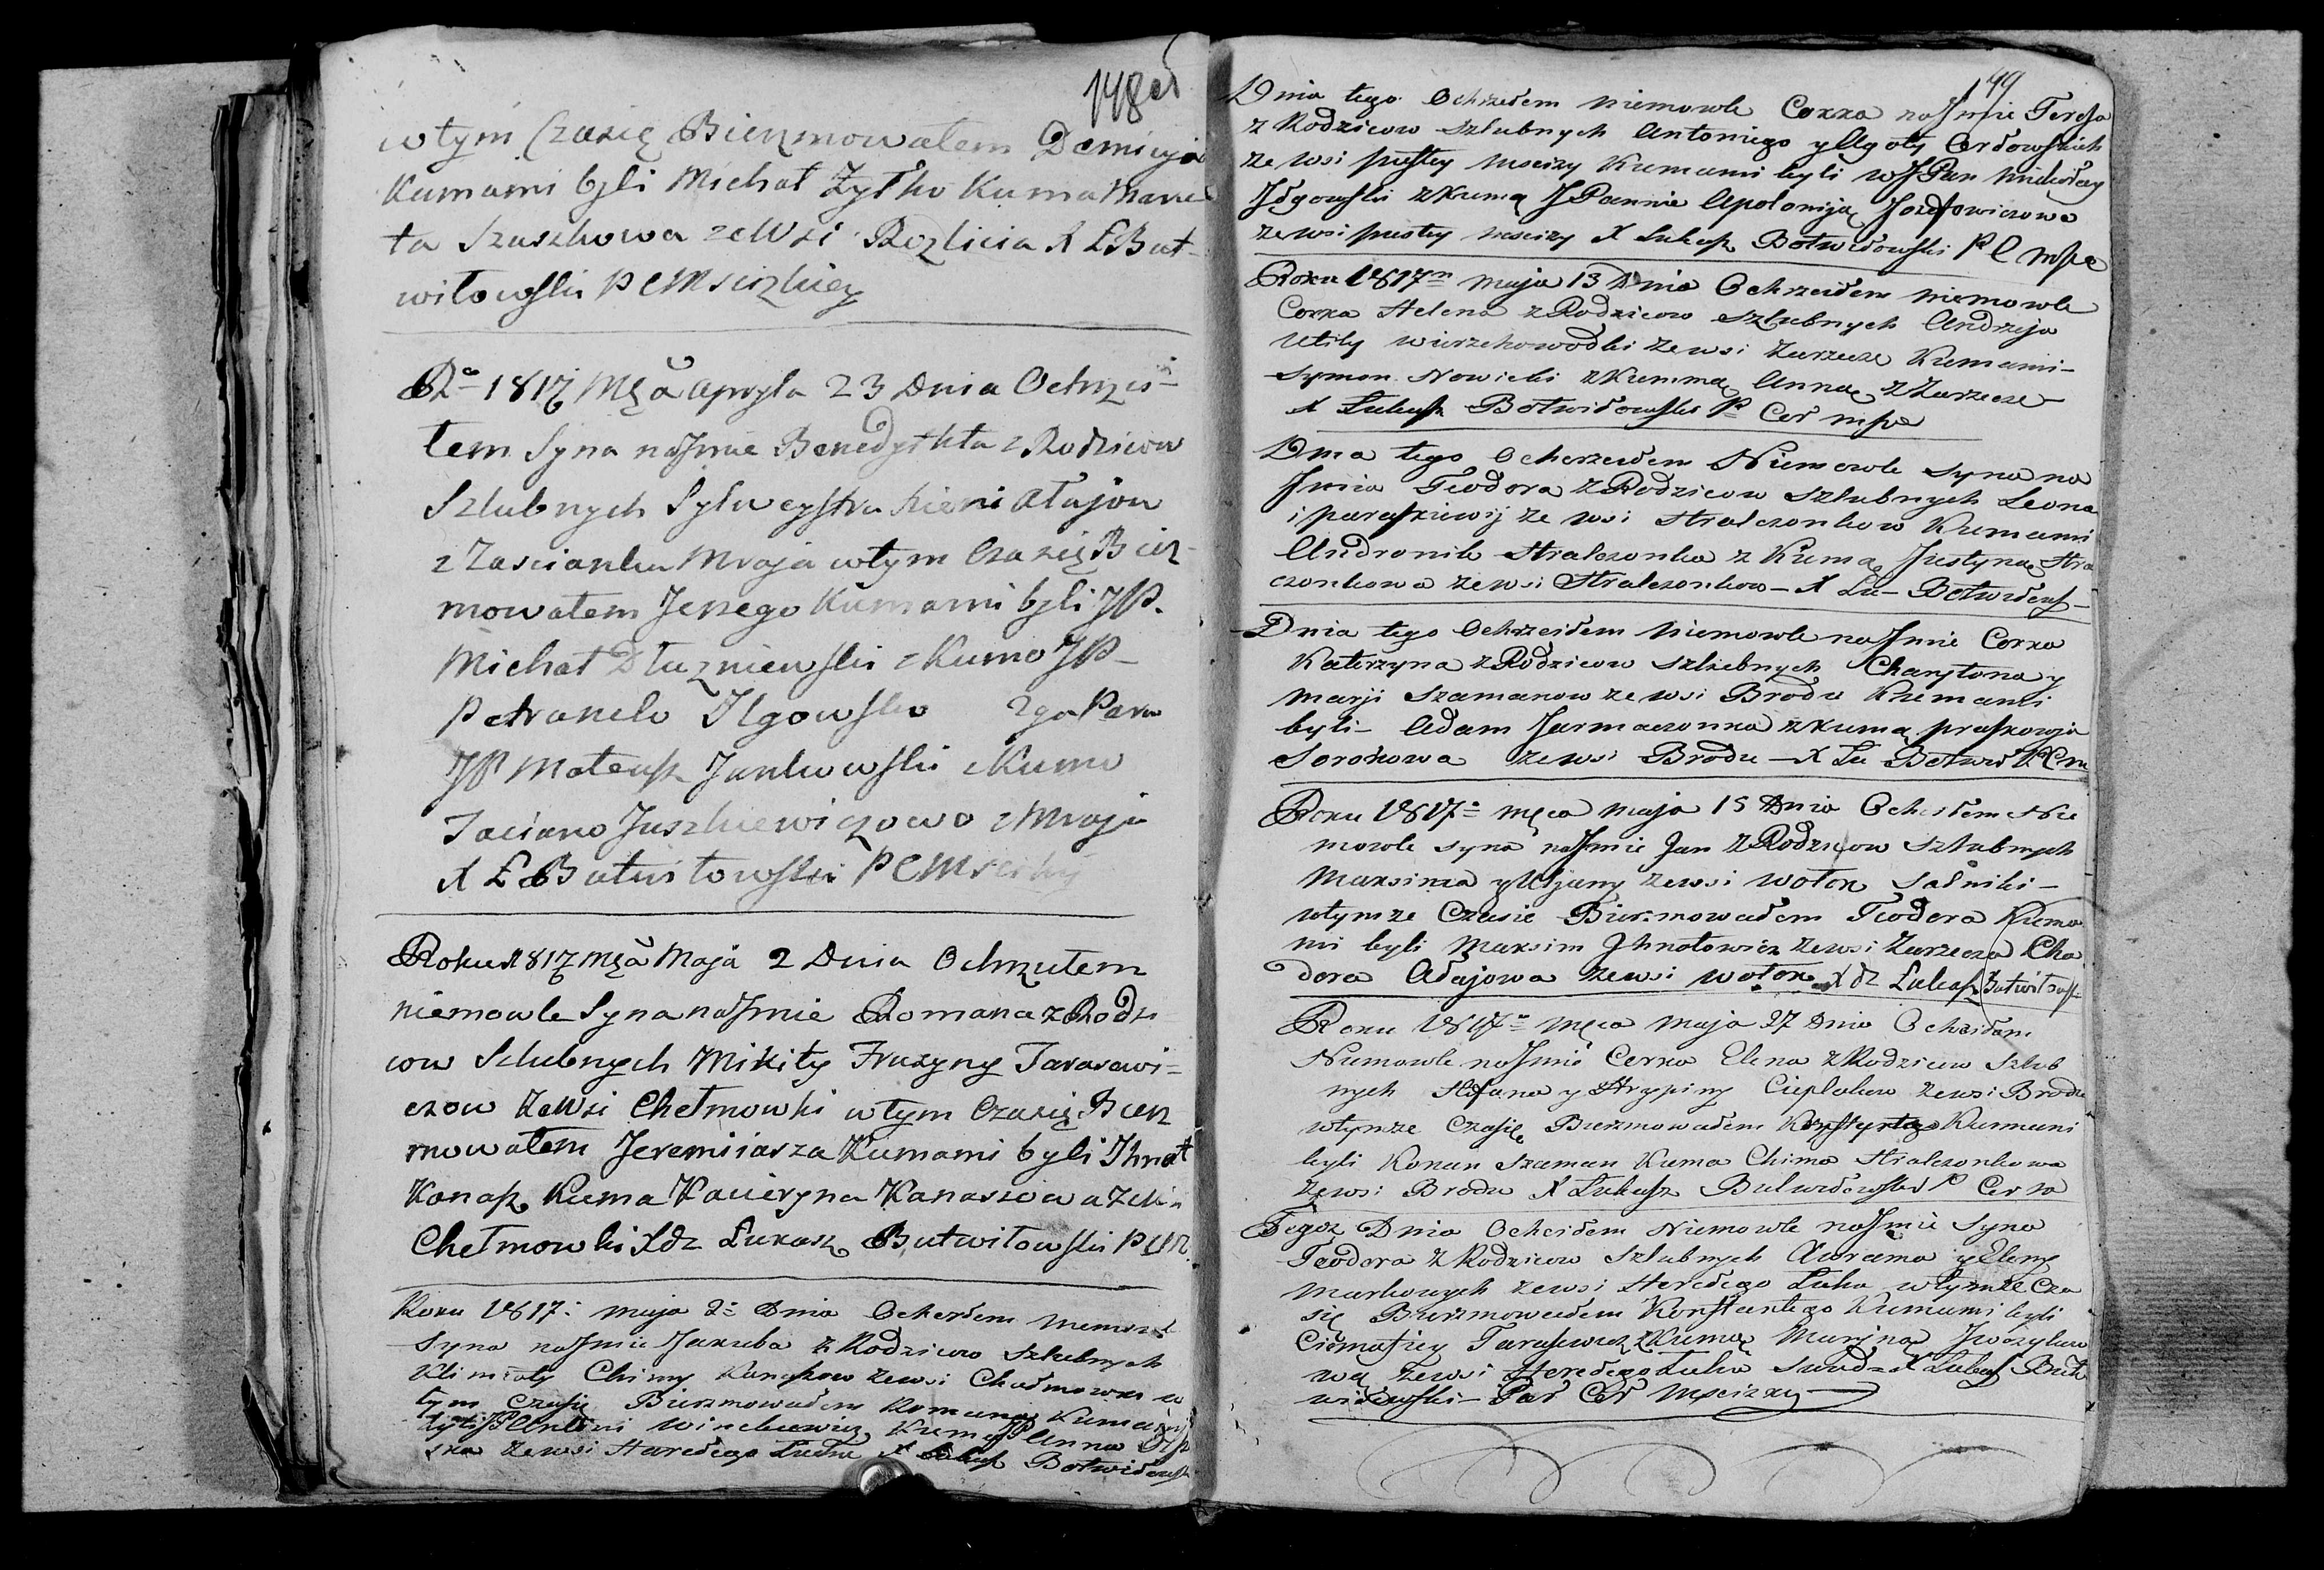 148об
w tym Czasię Bierzmowałem
Kumami byli Michał Żyłko Kuma
ta Szuszkowa ze Wsi X Ł But-
witowski P C Msciżkiey
Rᵒ 1817 Mca Apryla 23 Dnia Ochrzci-
łem Syna na Jmie Benedykta z Rodzicow
Szlubnych Sylwestra Atajow
z Zascianku Mraja w tym Czasię Bierz-
mowałem Jerzego Kumami byli JP.
Michał Dłuzniewski z Kumo JP-
Petronelo Ilgowsko 2ga Para
JP Mateusz Jankowski z Kumo
Taciano Juszkiewiczowo z Mraja
X Ł Butwitowski P C
Roku 1817 Mca Maja 2 Dnia Ochrzcułem
niemowle Syna na Jmie Romana z Rodzi
cow Szlubnych Mikity Fruzyny Tarasewi-
czow ze Wsi Chełmowki w tym Czasię Bierz
mowałem Jeremiiasza Kumami byli Ihnat
Konasz Kuma Kacieryna Kanaszowa ze Wsi
Chełmowki Xdz Łukasz Butwitowski P
Roku 1817: maja 2: Dnia Ochrzciłem niemowl
Syna na Jmie Jakuba z Rodzicow Szlubnych
Chimy Kanaszow ze wsi w
tym Czasię Bierzmowałem Romana Kuma
Antoni Winckiewicz Kumo JP Anna
ska ze wsi Haredzego Łuhu X Łukasz Botwidowsk
49
Dnia tego Ochrzciłem niemowle Corka na Jmie Teresa
z Rodzicow szlubnych Antoniego y Agaty Cerdowskich
ze wsi pustey msciży Kumami byli WJPan
z Kumą JPannie Apoloniją Jozefowiczowa
ze wsi pustey msciży X Lukasz Botwidowski P C mpe
Roku 1817ᵐ maja 13 Dnia Ochrzciłem niemowle
Corka Helena z Rodzicow szlubnych Andrzeja
Utily Wierzchowodki ze wsi Zarzecze Kumami-
Symon Nowicki z Kummą Anną z Zarzecze-
X Lukasz Botwidowski P Cer mpe
Dnia tego Ochrzciłem Niemowle syna na
Jmia Teodora z Rodzicow szlubnych Leona
i paraskiewij ze wsi Stralczonkow Kumami
Andronik Stralczonka z Kumą Justyną Stra
czonkowa ze wsi Stralczonkow- X Lu- Botwidows-
Dnia tego Ochrzciłem niemowle na Jmie Corka
Katerzyna z Rodzicow szlubnych Charytona y
Maryi Szamanow ze wsi Brodu Kumami
byli- Adam Jarmaczonka z kumą praskowja
Sorokowa ze wsi Brodu- X Lu Botwid P C m
Roku 1817: męca maja 15 Dnia Ochrzciłem Nie
mowle syna na Jmie Jan z Rodzicow szlubnych
Maksima y Uljany ze wsi Wołok Sadniki-
w tymze Czasie Bierzmowałem Teodora Kuma
mi byli Maksim Jhnatowicz ze wsi Zarzecza Cha
dora Adajowa ze wsi wołok X dz Łukasz Butwitows
Roku 1817: męca maja 27 Dnia Ochrzciłem
Niemowle na Jmie Corka Elena z Rodzicow Szlub
nych Stefana y Ahrypiny Cieplakow ze wsi Brodu
w tymze Czasię Bierzmowałem Kumami
byli Konan Szaman Kuma Chima Stralczonkowa
ze wsi Brodu X Lukasz Butwidowski P Cer m
Tegoz Dnia Ochrzciłem Niemowle na Jmie syna
Teodora z Rodzicow szlubnych Awrama y Eleny
Markowych ze wsi Haredzego Łuhu w tymze Cza
się Bierzmowałem Konstantego Kumami byli
Tarasewicz z Kumą Maryną
wą ze wsi Haredzego Łuhu X Lukasz But
widowski- Par Cer Msciżky